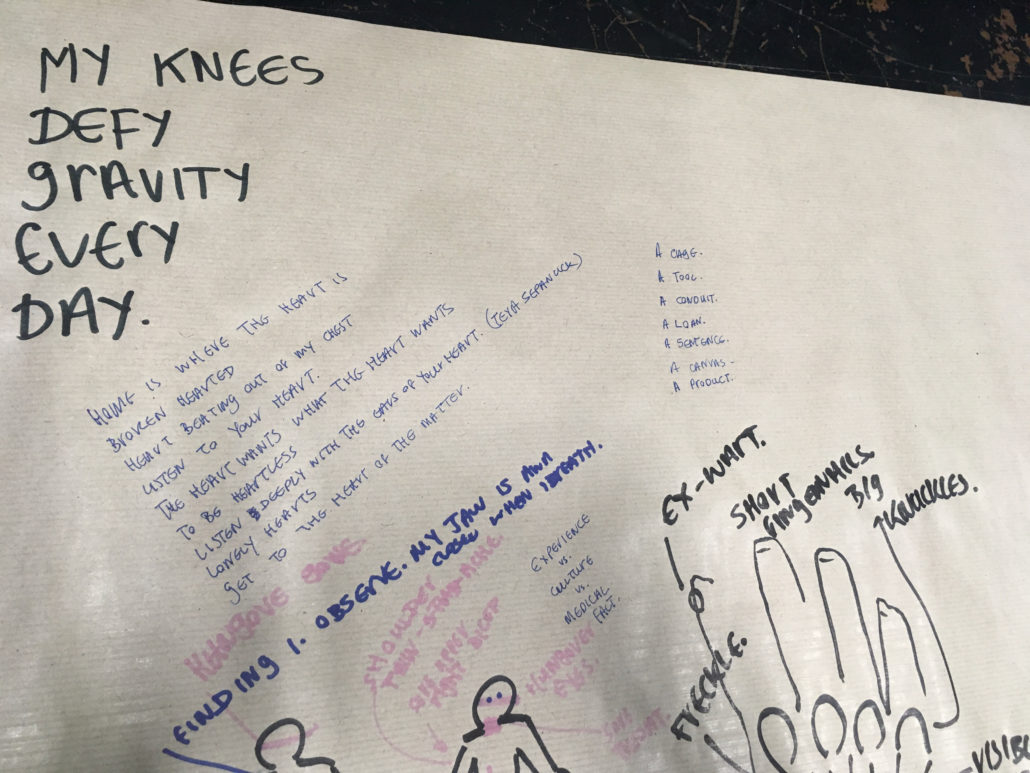 MY KNEES
DEFY
GRAVITY
EVERY
DAY.
HOME IS WHERE THE HEART IS
BROKEN HEARTED
HEART BEATING OUT OF MY CHEST
LISTEN TO YOUR HEART.
THE HEART WANTS WHAT THE HEART WANTS
TO BE HEARTLESS
LISTEN DEEPLY WITH THE EARS OF YOUR HEART.
LONELY HEARTS
GET TO THE HEART OF THE MATTER.
A CAGE.
A TOOL.
A CONDUIT.
A LOAN.
A SENTENCE.
A CANVAS.
A PRODUCT.
FINDING 1. OBSERVE. MY JAW IS
WHEN I BREATH.
EXPERIENCE
VS.
CULTURE
VS.
MEDICAL
FACT.
SHOULDER
EYES.
EX-WART.
OR
FRECKLE.
SHORT
FINGERNAILS
BIG
KNUCKLES.